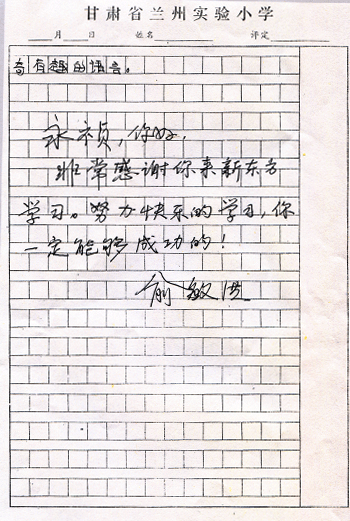 甘肃省兰州实验小学
月 日 姓名 评定
奇有趣的语言。
永祯，你好，
非常感谢你来新东方
学习。努力快乐的学习，你
一定能够成功的！
俞敏洪